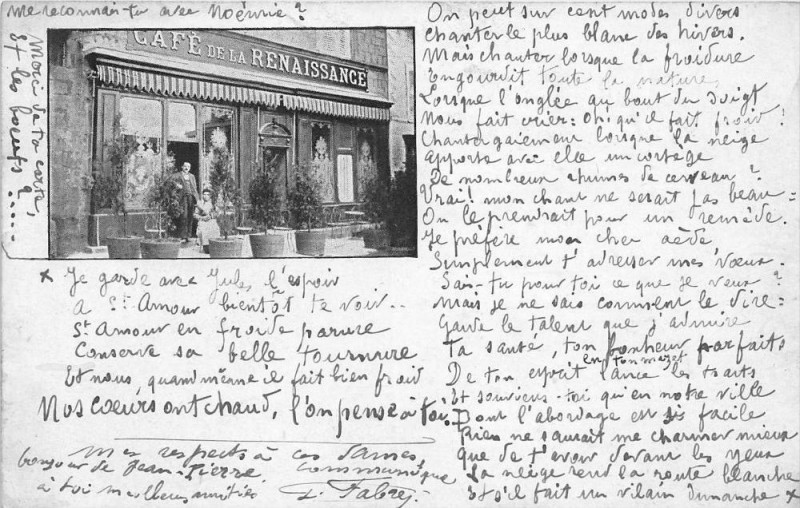 me reconnais-tu avec Noémie ?
Merci de ta carte,
Et les bocuts ? .....
CAFÉ DE LA RENAISSANCE
On peut sur cent modes divers
Chanter le plus blanc des hivers.
Mais chanter lorsque la froidure
Engourdit toute la nature,
Lorsque l'onglée au bout du doigt
Nous fait crier : Oh ! qu'il fait froid !
Chanter gaiement lorsque la neige
Apporte avec elle un cortège
De nombreux rhumes de cerveau ?
Vrai ! mon chant ne serait pas beau =
On le prendrait pour un remède.
Je préfère mon cher aède
Simplement t'adresser mes vœux.
Sais-tu pour toi ce que je veux ?
Mais je ne sais comment le dire =
Garde le talent que j'admire
Ta santé, ton bonheur parfaits
De ton esprit lance les traits
Et souviens-toi qu'en notre ville
Dont l'abordage est si facile
Rien ne saurait me charmer mieux
que de t'avoir devant les yeux
La neige rend la route blanche
Et s'il fait un vilain dimanche x
x Je garde avec Jules l'espoir
A St Amour bientôt te voir..
St Amour en froide parure
Conserve sa belle tournure
Et nous, quand même il fait bien froid
Nos cœurs ont chaud, l'on pense à toi.
Mes respects à ces dames,
bonjour de Jean-Pierre communique
à toi meilleures amitiés L. Fabrej.